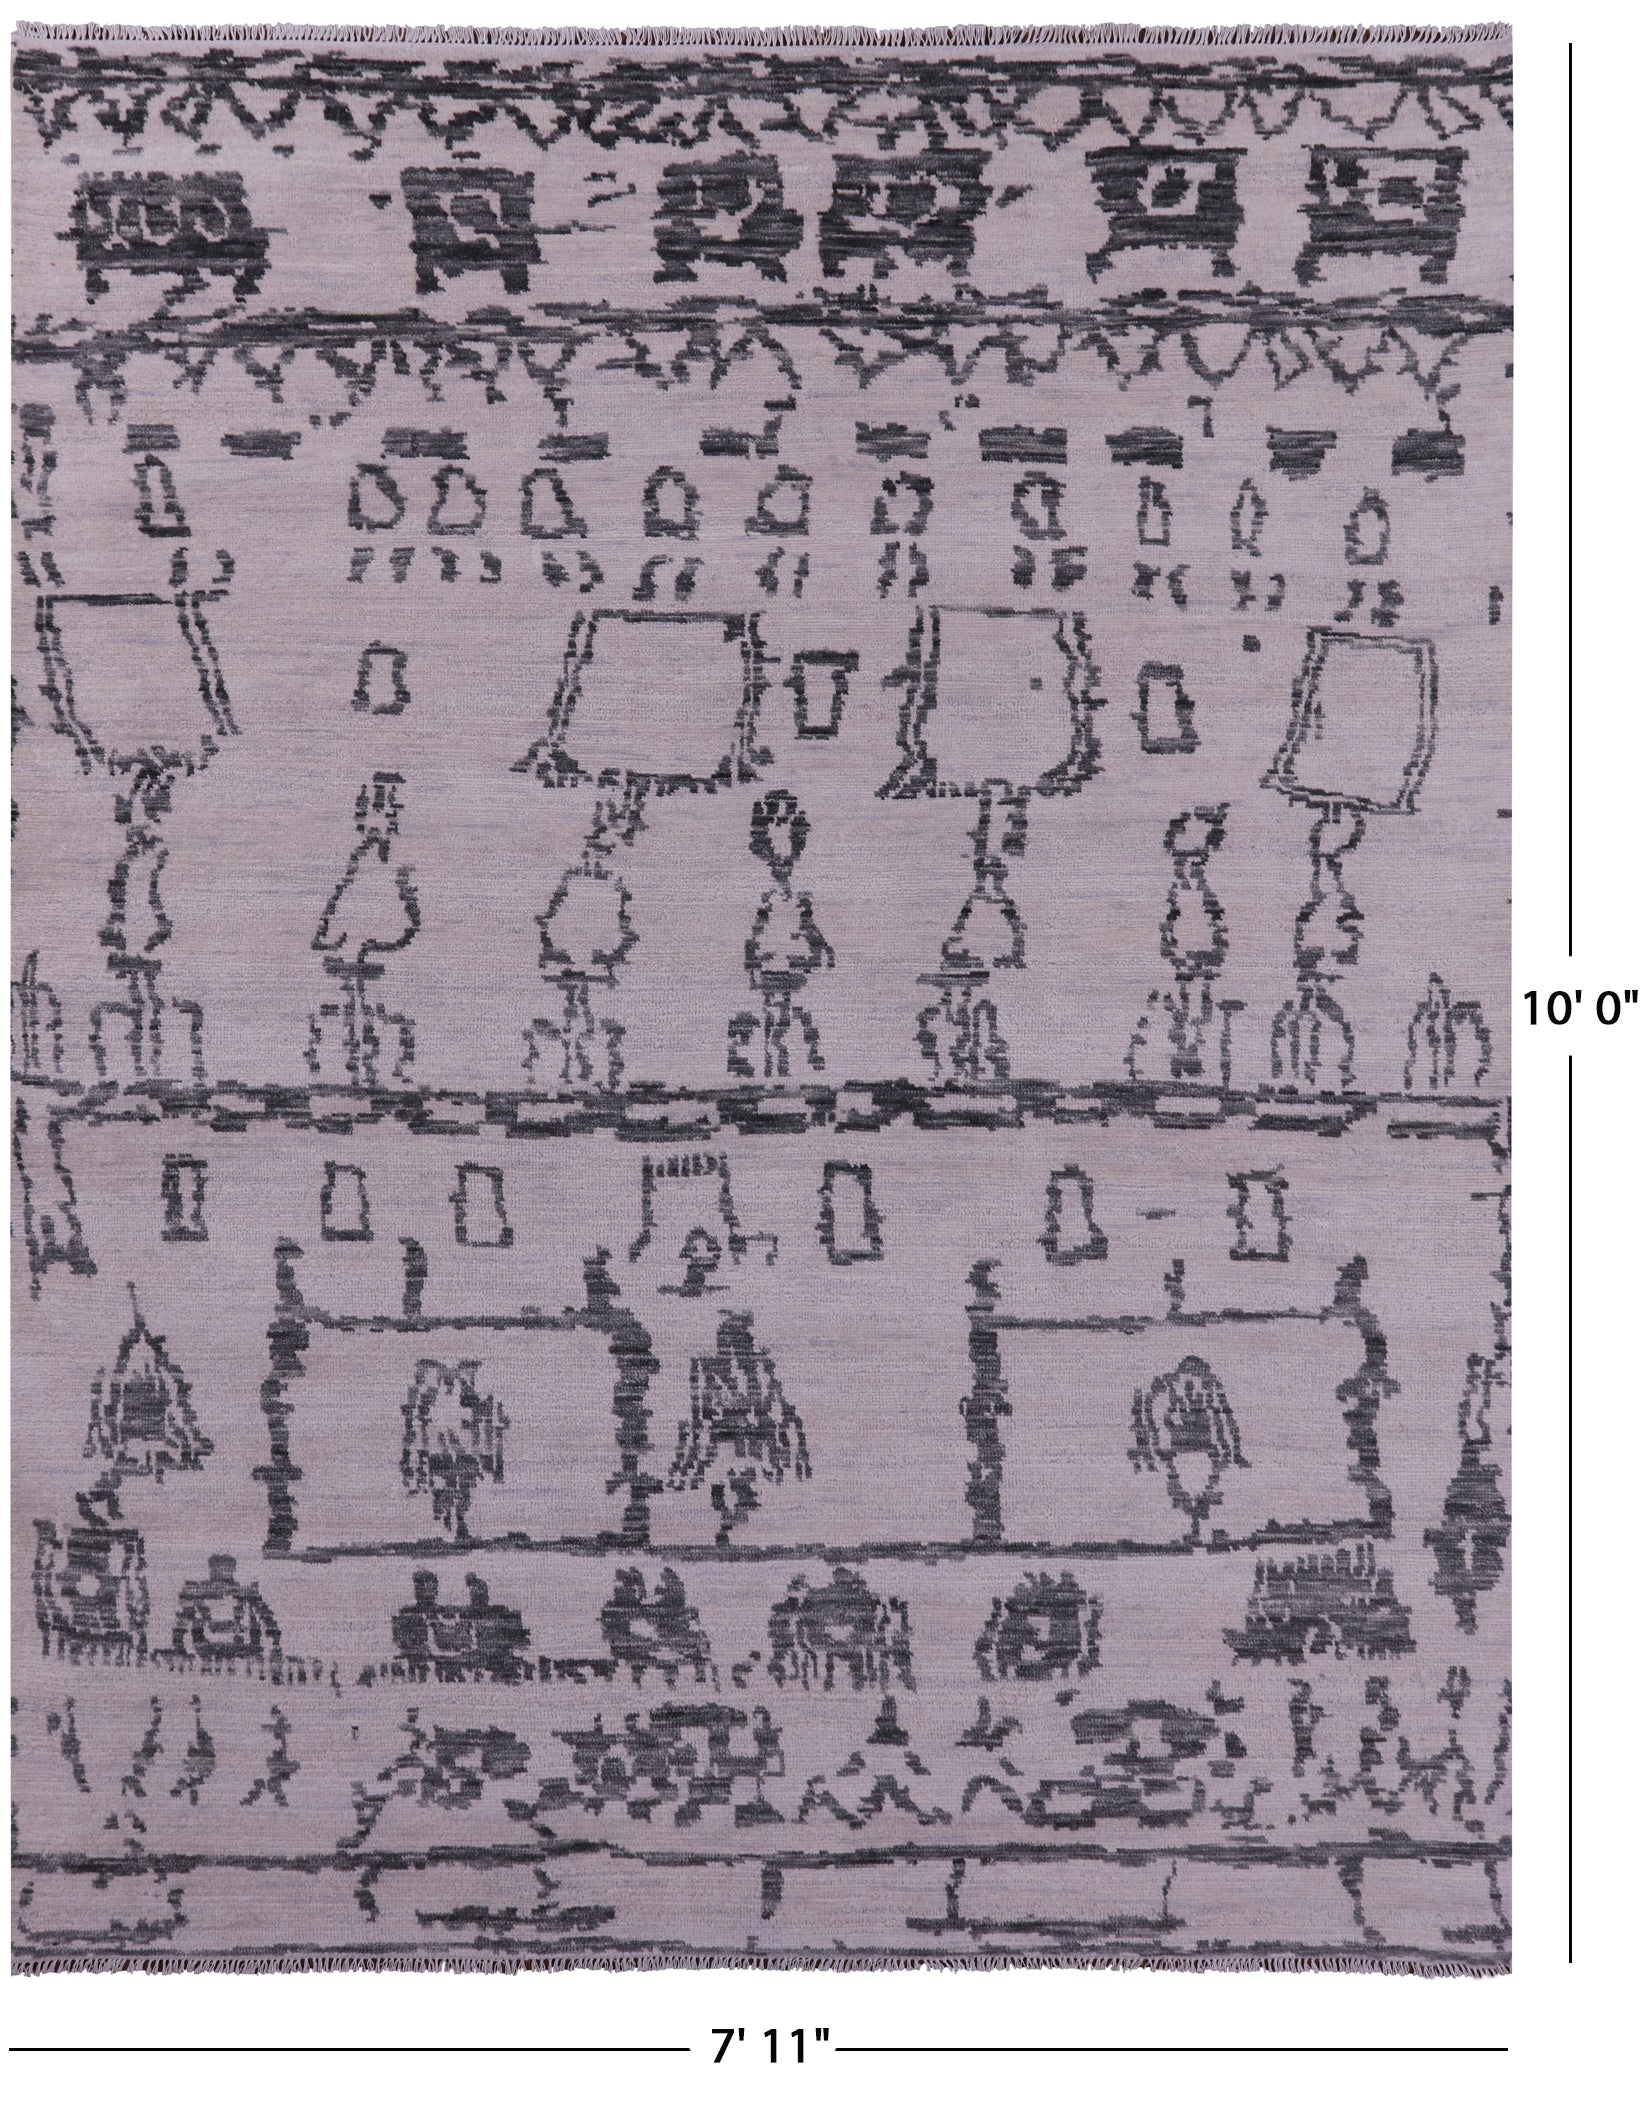 10' 0"
7' 11"